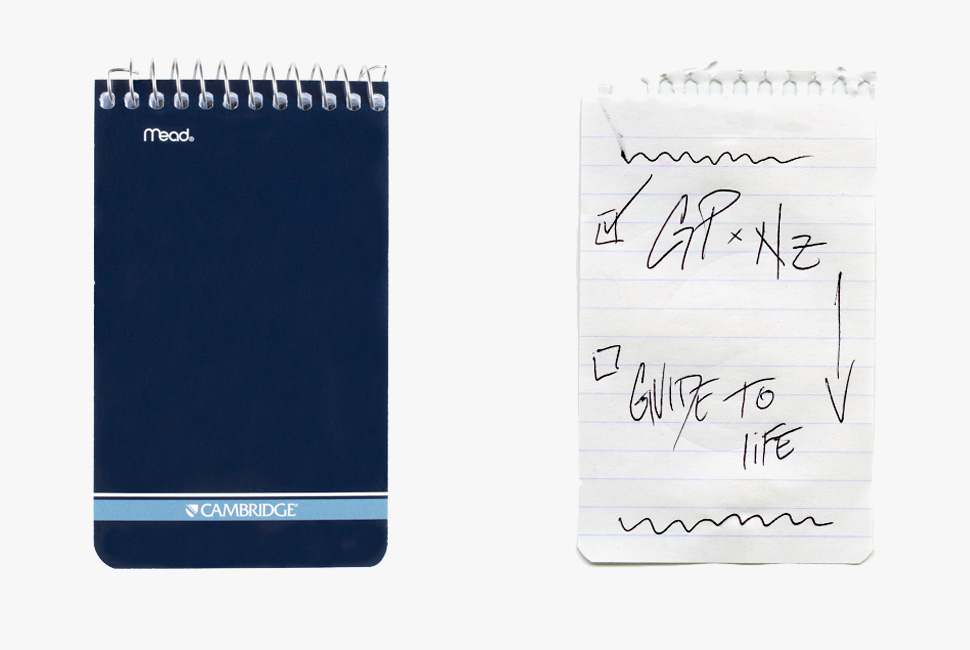 Mead®
CAMBRIDGE®
GP × Nz
GUIDE TO
liFE